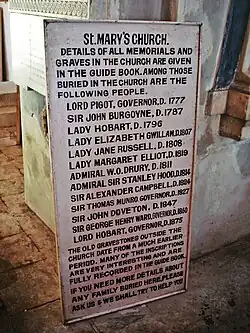 ST. MARY'S CHURCH.
DETAILS OF ALL MEMORIALS AND
GRAVES IN THE CHURCH ARE GIVEN
IN THE GUIDE BOOK. AMONG THOSE
BURIED IN THE CHURCH ARE THE
FOLLOWING PEOPLE.
LORD PIGOT, GOVERNOR, D. 1777
SIR JOHN BURGOYNE, D. 1787
LADY HOBART, D. 1796
LADY ELIZABETH GWILLAN, D. 1807
LADY JANE RUSSELL, D. 1808
LADY MARGARET ELLIOT, D. 1819
ADMIRAL W.O. DRURY, D. 1811
ADMIRAL SIR STANLEY HOOD, D. 1814
SIR ALEXANDER CAMPBELL, D. 1824
SIR THOMAS MUNRO GOVERNOR, D. 1827
SIR JOHN DOVETON, D. 1847
SIR GEORGE HENRY WARD, GOVERNOR, D. 1860
LORD HOBART, GOVERNOR, D. 1875
THE OLD GRAVESTONES OUTSIDE THE
CHURCH DATE FROM A MUCH EARLIER
PERIOD. MANY OF THE INSCRIPTIONS
ARE VERY INTERESTING AND ARE
FULLY RECORDED IN THE GUIDE BOOK.
IF YOU NEED MORE DETAILS ABOUT
ANY FAMILY BURIED HERE, PLEASE
ASK US & WE SHALL TRY TO HELP YOU